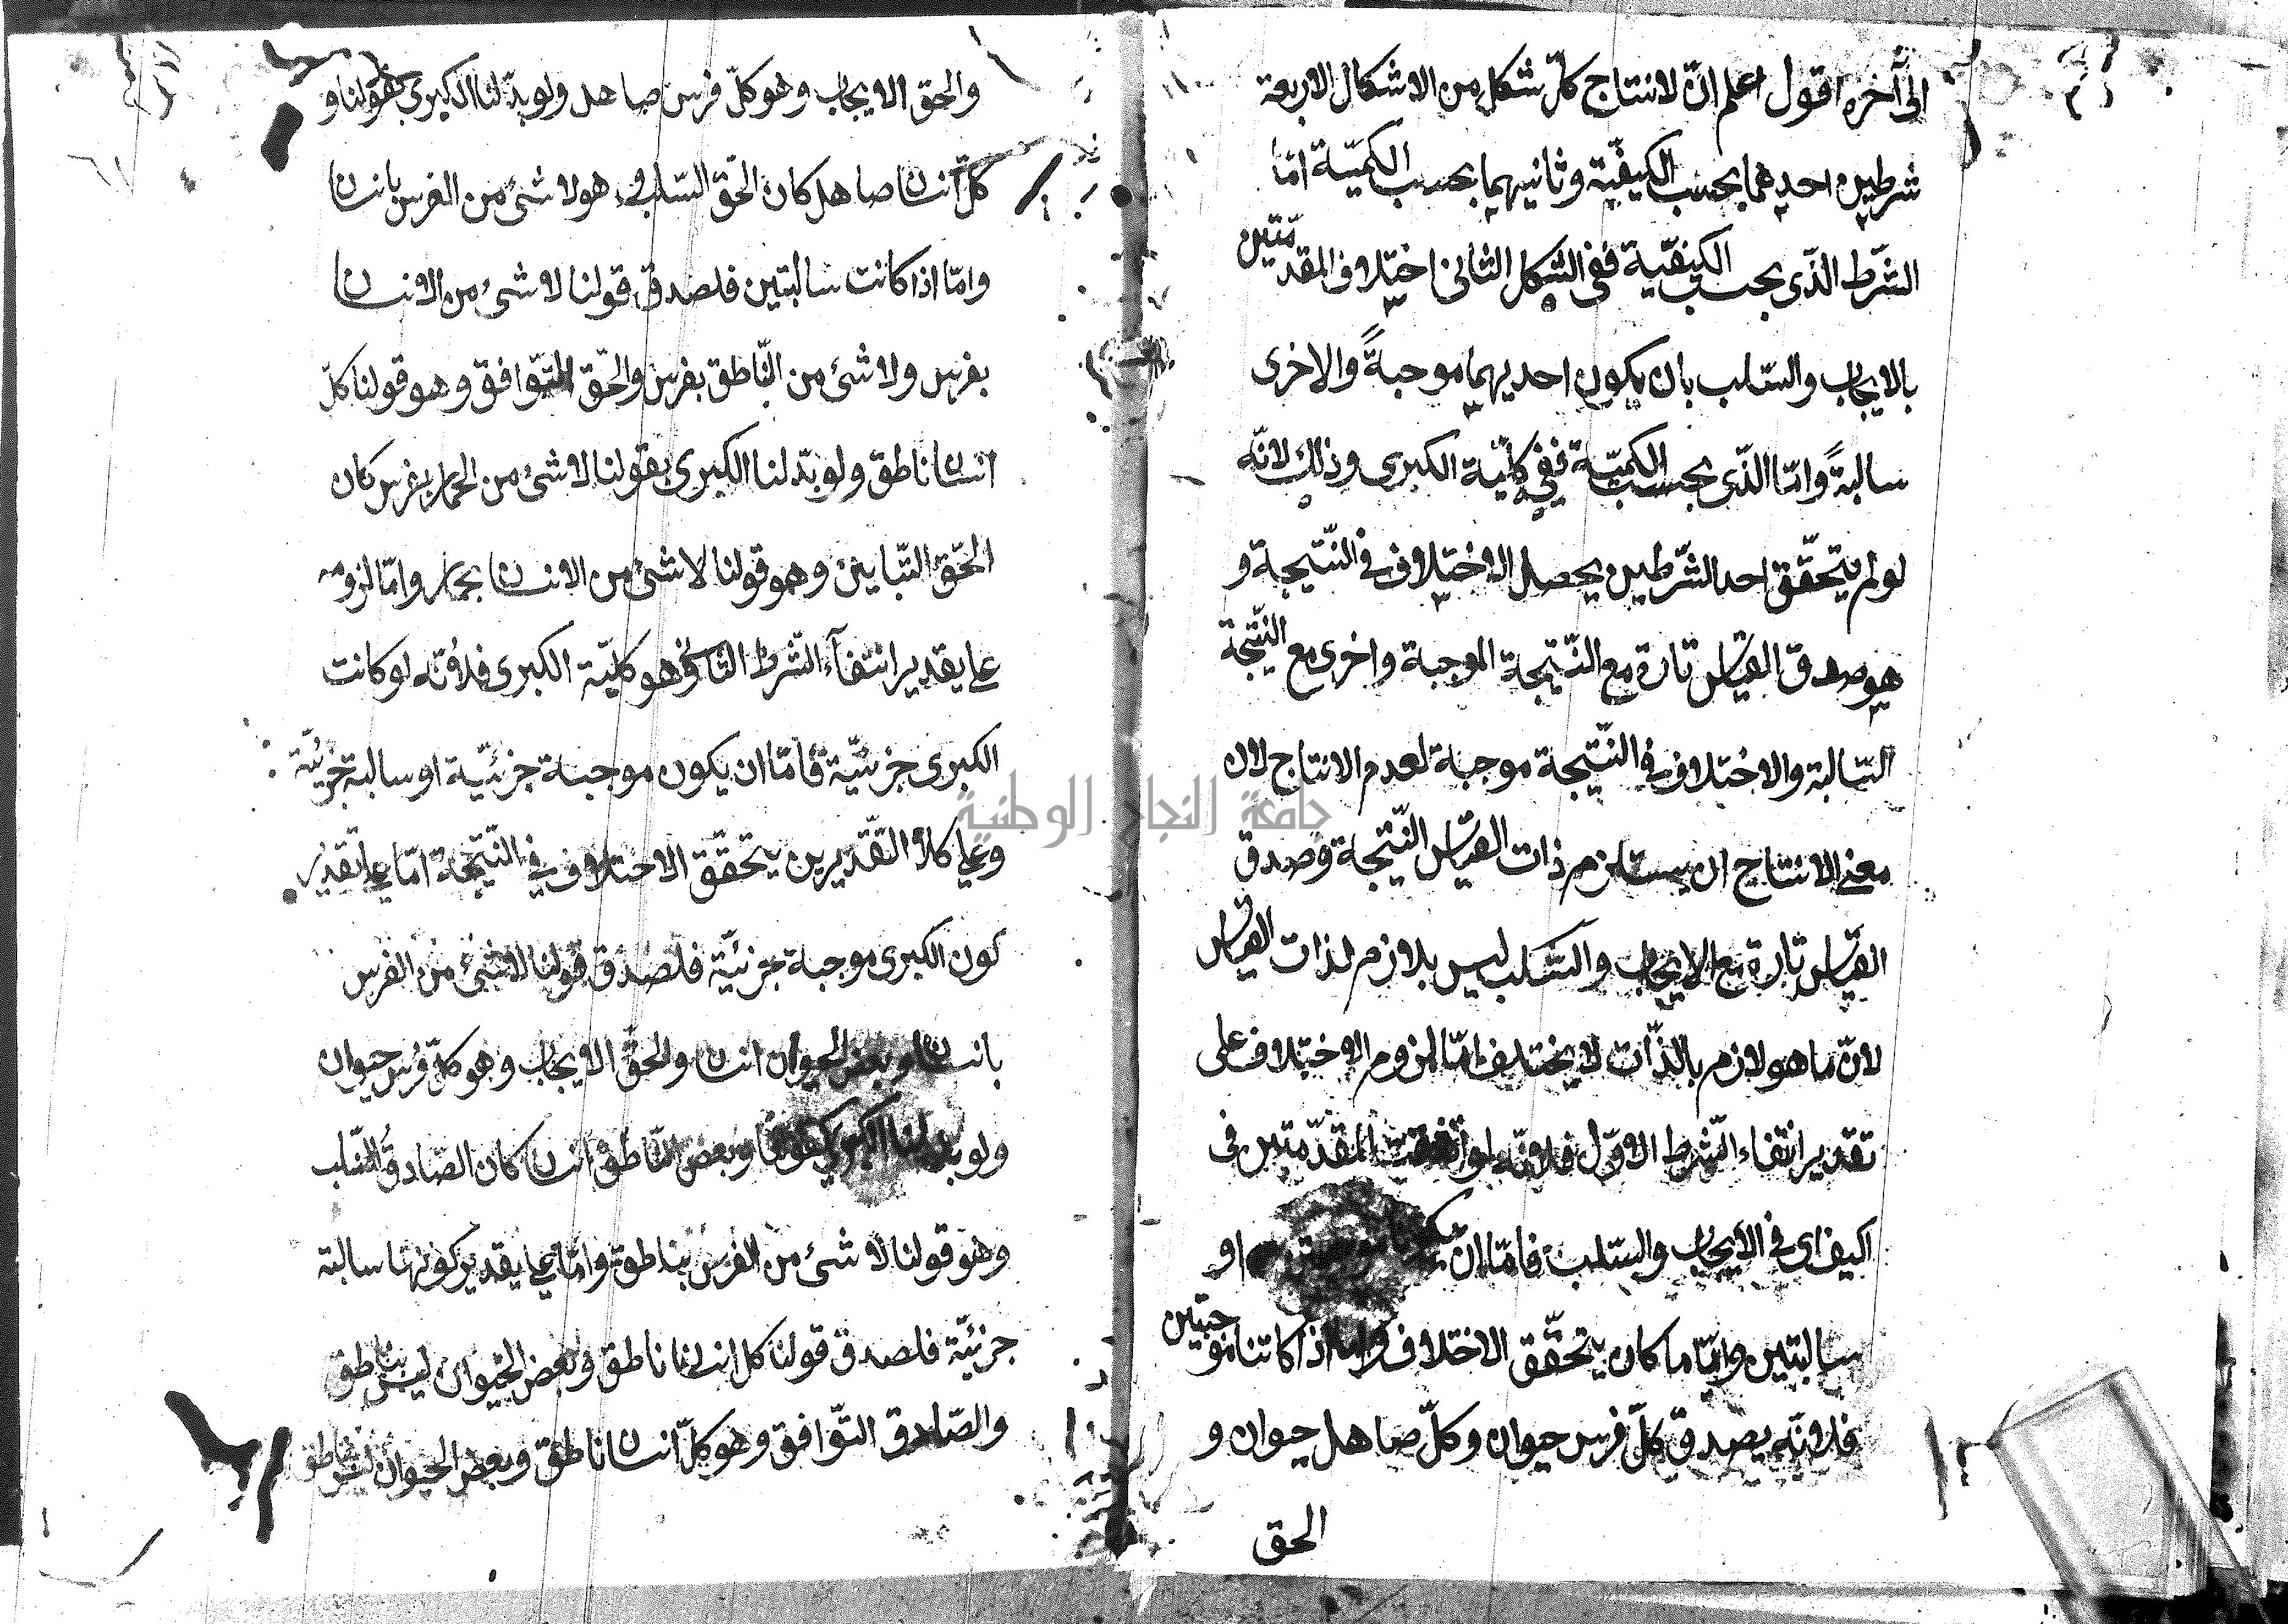 الى آخره اقول اعلم انّ لانتاج كلّ شكل من الاشكال الاربعة
شرطين احديهما بحسب الكيفيّة وثانيهما بحسب الكميّة امّا
الشّرط الذّى بحسب الكيفيّة ففى الشّكل الثانى اختلاف المقدّمتين
بالايجاب والسّلب بان يكون احديهما موجبةً والاخرى
سالبةً وامّا الذّى بحسب الكميّة ففى كليّة الكبرى وذلك لانّه
لو لم يتحقّق احد الشّرطين يحصل الاختلاف فى النّتيجة و
هو صدق القياس تارة مع النّتيجة الموجبة واخرى مع النّتيجة
السّالبة والاختلاف فى النّتيجة موجبة لعدم الانتاج لان
معنى الانتاج ان يستلزم ذات القياس النّتيجة وصدق
القياس تارة مع الايجاب والسّلب ليس بلازم لذات القياس
لانّ ما هو لازم بالذّات لا يختلف امّا لزوم الاختلاف على
تقدير انتفاء الشّرط الاوّل فلانّه لو اتفقت المقدّمتين فى
الكيف اى فى الايجاب والسّلب فامّا ان او
سالبتين وايّما ما كان يتحقّق الاختلاف وامّا اذا كانتا موجبتين
فلانّه يصدق كلّ فرس حيوان وكلّ صاهل حيوان و
الحق
والحق الايجاب وهو كلّ فرس صاهل ولو بدّلنا الكبرى بقولنا و
كلّ انسان صاهل كان الحق السّلب وهو لا شئ من الفرس بانسان
وامّا اذا كانت سالبتين فلصدق قولنا لا شئ من الانسان
بفرس ولا شئ من النّاطق بفرس والحّق التّوافق وهو قولنا كلّ
انسان ناطق ولو بدّلنا الكبرى بقولنا لا شئ من الحمار بفرس كان
الحّق التّباين وهو قولنا لا شئ من الانسان بحمار وامّا لزومه
على تقدير انتفآء الشّرط الثانى وهو كليّة الكبرى فلانّه لو كانت
الكبرى جزئيّة فامّا ان يكون موجبة جزئيّة او سالبة جزئيّة
وعلى كلا التقديرين يتحقّق الاختلاف فى النّتيجة امّا على تقدير
كون الكبرى موجبة جزئيّة فلصدق قولنا لا شئ من الفرس
بانسان وبعض الحيوان انسان والحقّ الايجاب وهو كلّ فرس حيوان
ولو بدّلنا الكبرى بقولنا وبعض النّاطق انسان كان الصّادق السّلب
وهو قولنا لا شئ من الفرس بناطق وامّا على تقدير كونها سالبة
جزئيّة فلصدق قولنا كل انسان ناطق وبعض الحيوان ليس بناطق
والصّادق التّوافق وهو كلّ انسان ناطق وبعض الحيوان ليس بناطق
جامعة النجاح الوطنية